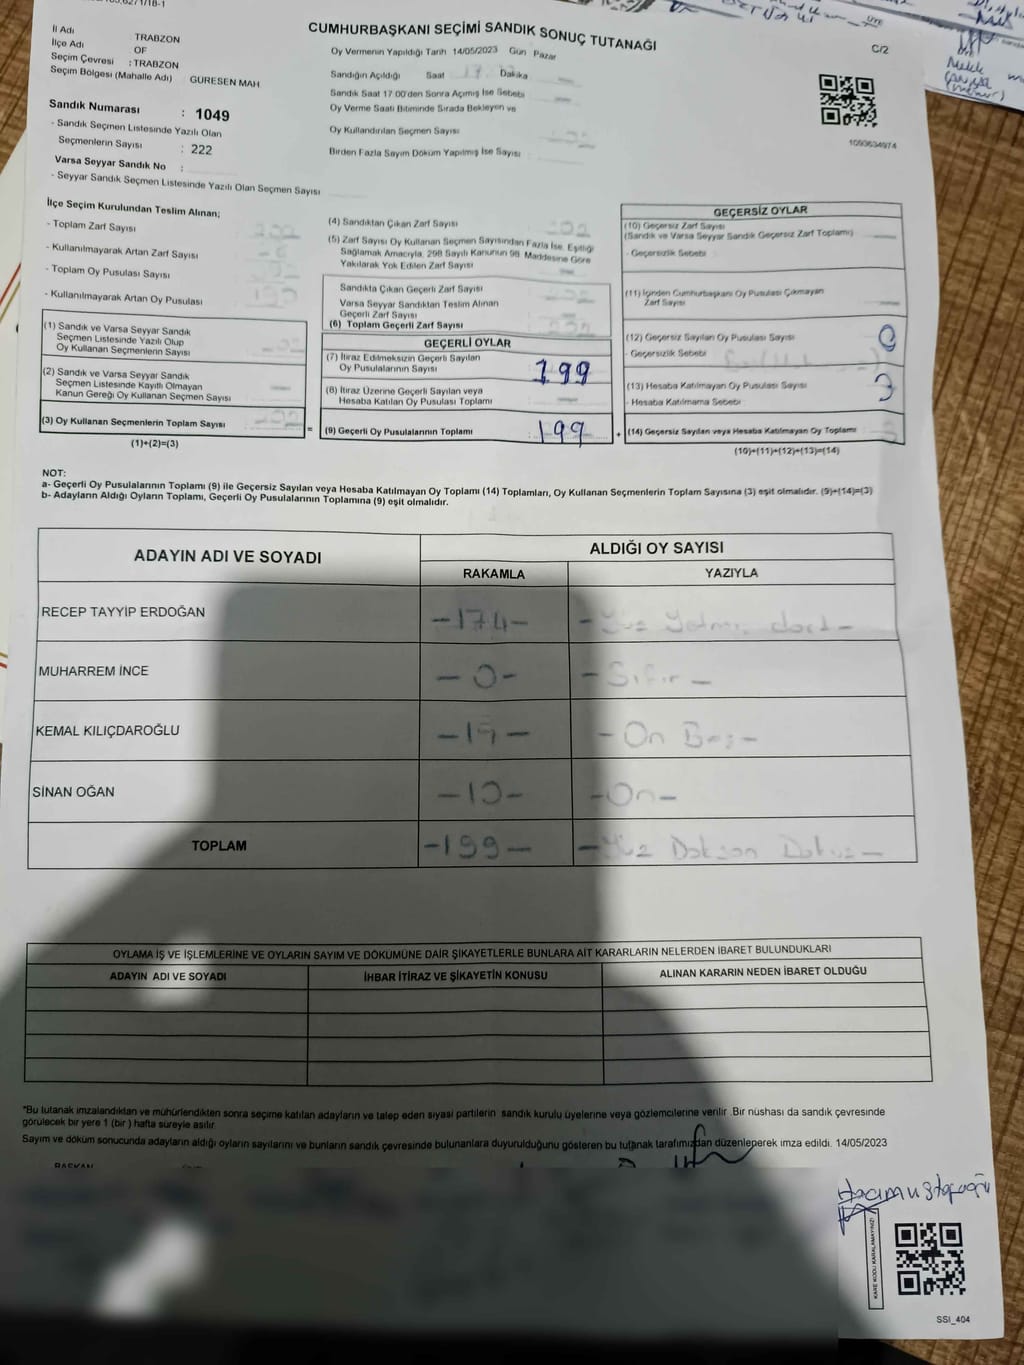 CUMHURBAŞKANI SEÇİMİ SANDIK SONUÇ TUTANAĞI
C/2
İl Adı TRABZON
İlçe Adı OF
Seçim Çevresi : TRABZON
Seçim Bölgesi (Mahalle Adı) GÜRESEN MAH
Sandık Numarası : 1049
- Sandık Seçmen Listesinde Yazılı Olan
Seçmenlerin Sayısı : 222
Varsa Seyyar Sandık No :
- Seyyar Sandık Seçmen Listesinde Yazılı Olan Seçmen Sayısı
Oy Vermenin Yapıldığı Tarih 14/05/2023 Gün Pazar
Sandığın Açıldığı Saat 17 Dakika
Sandık Saat 17:00'den Sonra Açımış İse Sebebi
Oy Verme Saati Bitiminde Sırada Bekleyen ve
Oy Kullandırılan Seçmen Sayısı
Birden Fazla Sayım Döküm Yapılmış İse Sayısı
1093634974
İlçe Seçim Kurulundan Teslim Alınan;
- Toplam Zarf Sayısı
- Kullanılmayarak Artan Zarf Sayısı
- Toplam Oy Pusulası Sayısı
- Kullanılmayarak Artan Oy Pusulası
(1) Sandık ve Varsa Seyyar Sandık
Seçmen Listesinde Yazılı Olup
Oy Kullanan Seçmenlerin Sayısı
(2) Sandık ve Varsa Seyyar Sandık
Seçmen Listesinde Kayıtlı Olmayan
Kanun Gereği Oy Kullanan Seçmen Sayısı
(3) Oy Kullanan Seçmenlerin Toplam Sayısı 202
(1)+(2)=(3)
(4) Sandıktan Çıkan Zarf Sayısı 202
(5) Zarf Sayısı Oy Kullanan Seçmen Sayısından Fazla İse, Eşitliği
Sağlamak Amacıyla, 298 Sayılı Kanunun 98. Maddesine Göre
Yakılarak Yok Edilen Zarf Sayısı
Sandıkta Çıkan Geçerli Zarf Sayısı
Varsa Seyyar Sandıktan Teslim Alınan
Geçerli Zarf Sayısı
(6) Toplam Geçerli Zarf Sayısı 202
GEÇERLİ OYLAR
(7) İtiraz Edilmeksizin Geçerli Sayılan
Oy Pusulalarının Sayısı 199
(8) İtiraz Üzerine Geçerli Sayılan veya
Hesaba Katılan Oy Pusulası Toplamı
= (9) Geçerli Oy Pusulalarının Toplamı : 199
GEÇERSİZ OYLAR
(10) Geçersiz Zarf Sayısı
(Sandık ve Varsa Seyyar Sandık Geçersiz Zarf Toplamı)
- Geçersizlik Sebebi
(11) İçinden Cumhurbaşkanı Oy Pusulası Çıkmayan
Zarf Sayısı
(12) Geçersiz Sayılan Oy Pusulası Sayısı 0
- Geçersizlik Sebebi
(13) Hesaba Katılmayan Oy Pusulası Sayısı 3
- Hesaba Katılmama Sebebi
+ (14) Geçersiz Sayılan veya Hesaba Katılmayan Oy Toplamı 3
(10)+(11)+(12)+(13)=(14)
NOT:
a- Geçerli Oy Pusulalarının Toplamı (9) ile Geçersiz Sayılan veya Hesaba Katılmayan Oy Toplamı (14) Toplamları, Oy Kullanan Seçmenlerin Toplam Sayısına (3) eşit olmalıdır. (9)+(14)=(3)
b- Adayların Aldığı Oyların Toplamı, Geçerli Oy Pusulalarının Toplamına (9) eşit olmalıdır.
ADAYIN ADI VE SOYADI ALDIĞI OY SAYISI
RAKAMLA YAZIYLA
RECEP TAYYİP ERDOĞAN -174- - Yüz Yetmiş dört -
MUHARREM İNCE -0- - Sıfır -
KEMAL KILIÇDAROĞLU -15- - On Beş -
SİNAN OĞAN -10- -On-
TOPLAM -199- - Yüz Doksan Dokuz -
OYLAMA İŞ VE İŞLEMLERİNE VE OYLARIN SAYIM VE DÖKÜMÜNE DAİR ŞİKAYETLERLE BUNLARA AİT KARARLARIN NELERDEN İBARET BULUNDUKLARI
ADAYIN ADI VE SOYADI İHBAR İTİRAZ VE ŞİKAYETİN KONUSU ALINAN KARARIN NEDEN İBARET OLDUĞU
*Bu tutanak imzalandıktan ve mühürlendikten sonra seçime katılan adayların ve talep eden siyasi partilerin sandık kurulu üyelerine veya gözlemcilerine verilir .Bir nüshası da sandık çevresinde
görülecek bir yere 1 (bir ) hafta süreyle asılır.
Sayım ve döküm sonucunda adayların aldığı oyların sayılarını ve bunların sandık çevresinde bulunanlara duyurulduğunu gösteren bu tutanak tarafımızdan düzenlenerek imza edildi. 14/05/2023
BAŞKAN
KARE KODU KARALAMAYINIZ!
SSI_404